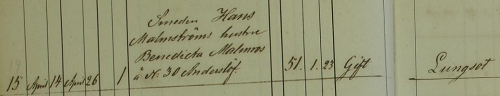 Smeden Hans
Malmströms hustru
Benedicta Malmros
15 April 14 April 26 1 å N. 30 Anderslöf. 51. 1. 23 Gift Lungsot